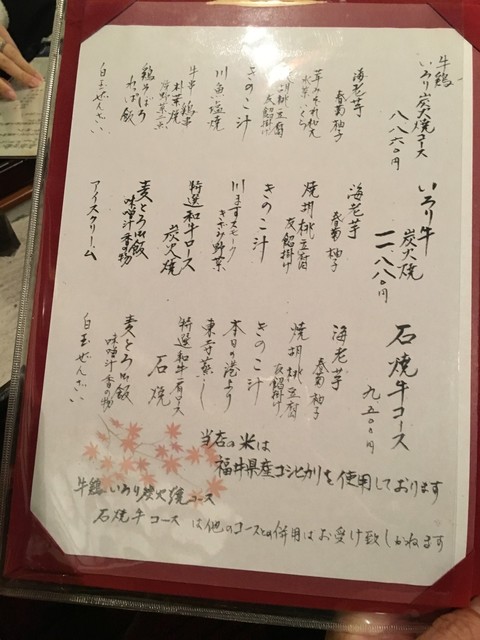 牛鶏
いろり炭火焼コース
八八六〇円
海老芋
春菊 柚子
胡桃豆腐
きのこ汁
川魚塩焼
牛串 鶏串
鶏そぼろ
わっぱ飯
白玉ぜんざい
いろり牛
炭火焼
一一、八八〇円
海老芋
春菊 柚子
焼胡桃豆腐
灰餡掛け
きのこ汁
川ますスモーク
きざみ野菜
特選和牛ロース
炭火焼
麦とろ御飯
味噌汁 香の物
アイスクリーム
石焼牛コース
九五〇〇円
海老芋
春菊 柚子
焼胡桃豆腐
灰餡掛け
きのこ汁
本日の港より
東寺蒸し
特選和牛肩ロース
石焼
麦とろ御飯
味噌汁 香の物
白玉ぜんざい
当店の米は
福井県産コシヒカリを使用しております
牛鶏いろり炭火焼コース
石焼牛コースは他のコースとの併用はお受け致しかねます